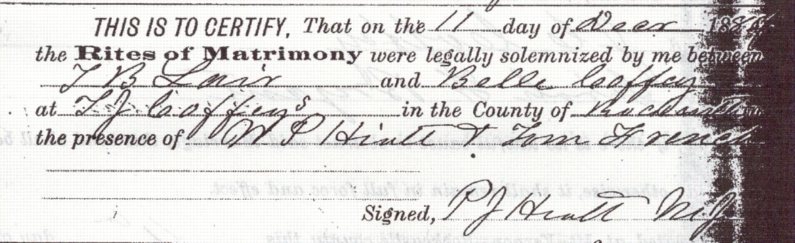 THIS IS TO CERTIFY, That on the 11 day of Decr 188
the Rites of Matrimony were legally solemnized by me between
T B Lair and Belle Coffey
at T. J. Coffey's in the County of
the presence of W P Hiatt & Tom French
Signed, P J Hiatt